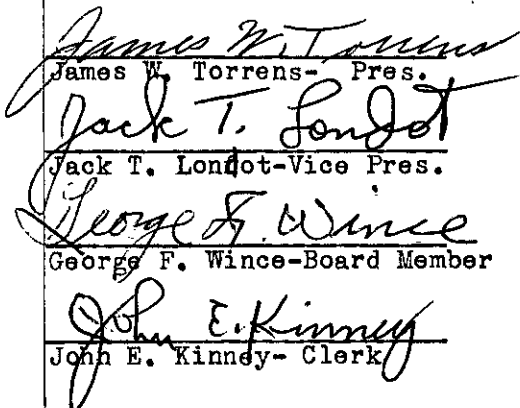 James W. Torrens
James W. Torrens- Pres.
Jack T. Londot
Jack T. Londot-Vice Pres.
George F. Wince
George F. Wince-Board Member
John E. Kinney
John E. Kinney- Clerk